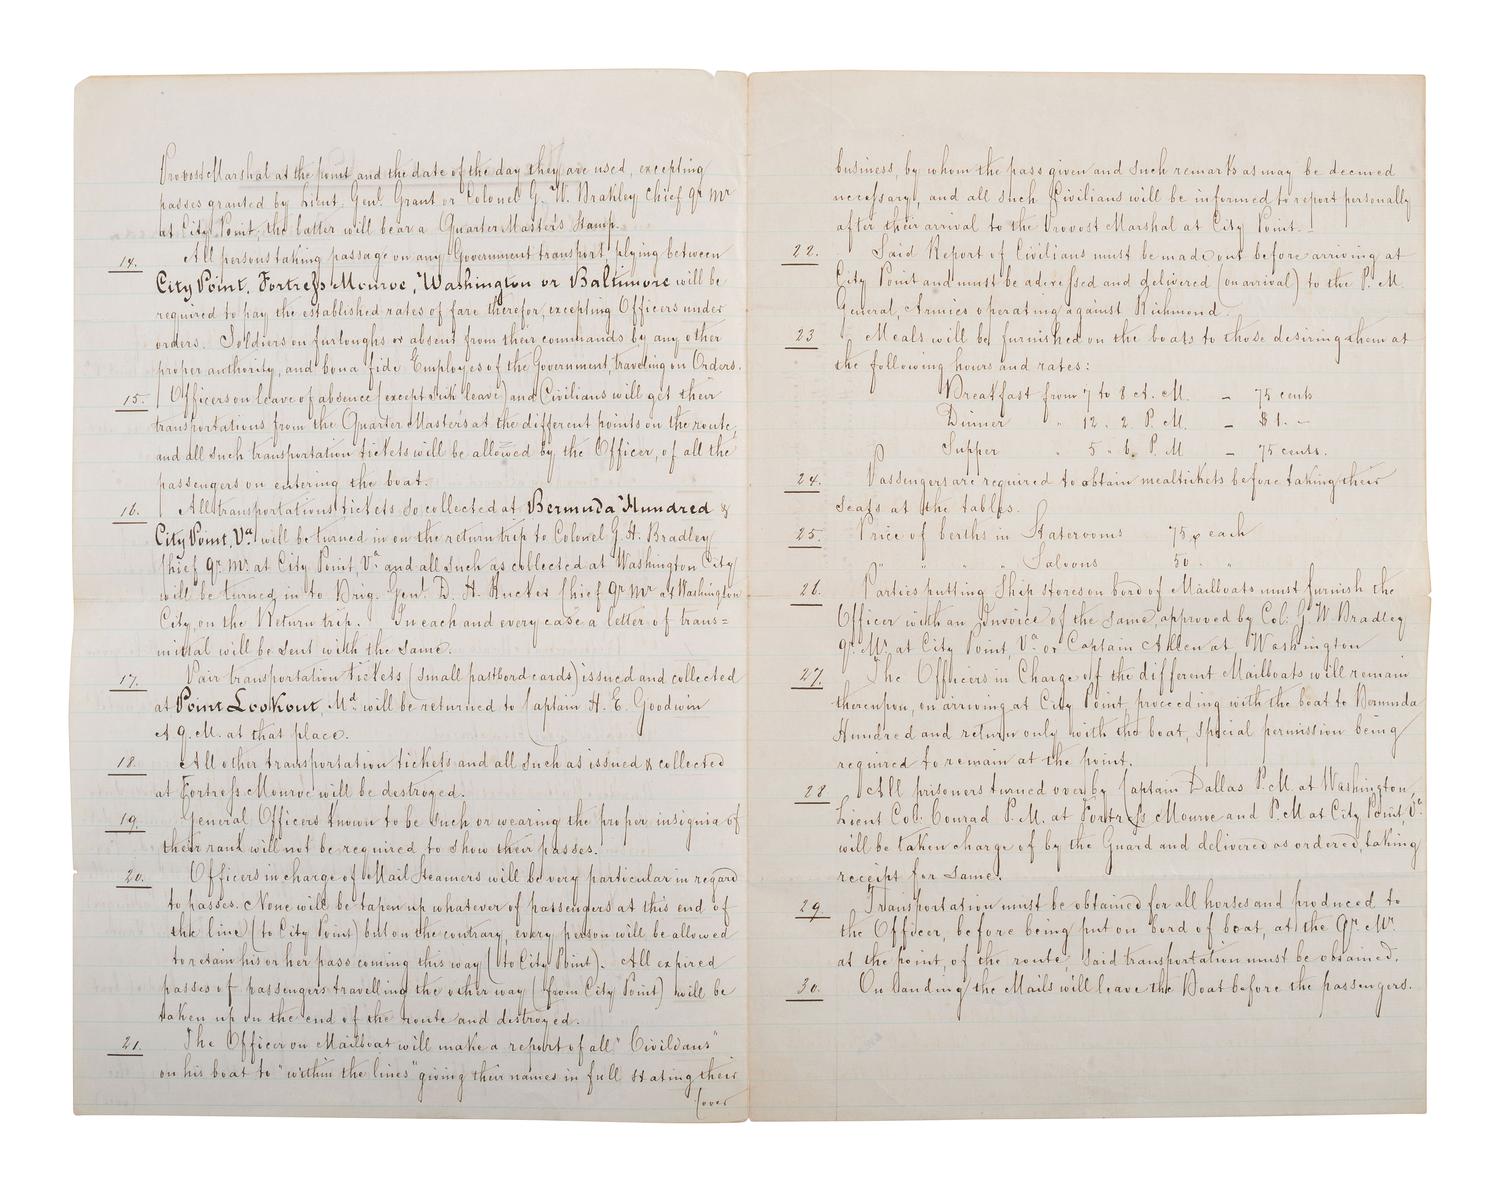 Provost Marshal at the point and the date of the day they are used, excepting
passes granted by Lieut. Genl. Grant or Colonel G. W. Brakley Chief Qr Mr
at City Point, the latter will bear a Quarter Master's Stamp.
14. All persons taking passage on any Government transport, plying between
City Point, Fortress Monroe, Washington or Baltimore will be
required to pay the established rates of fare therefor, excepting Officers under
orders. Soldiers on furloughs or absent from their commands by any other
proper authority, and bona fide Employes of the Government, traveling on Orders.
15. Officers on leave of absence (except sick leave) and Civilians will get their
transportations from the Quarter Masters at the different points on the route,
and all such transportation tickets will be allowed by the Officer, of all the
passengers on entering the boat.
16. All transportations tickets so collected at Bermuda Hundred &
City Point, Va. will be turned in on the return trip to Colonel G. H. Bradley
Chief Qr. Mr. at City Point, Va. and all such as collected at Washington City
will be turned in to Brig. Genl. D. H. Rucker Chief Qr Mr at Washington
City, on the Return trip. In each and every case a letter of trans=
mittal will be sent with the same.
17. Pair transportation tickets (small pastbord cards) issued and collected
at Point Lookout, Md. will be returned to Captain H. E. Goodwin
A Q. M. at that place.
18. All other transportation tickets and all such as issued & collected
at Fortress Monroe will be destroyed.
19. General Officers known to be such or wearing the proper insignia of
their rank will not be required to show their passes.
20. Officers in charge of Mail Steamers will be very particular in regard
to passes. None will be taken up whatever of passengers at this end of
the line (to City Point) but on the contrary, every person will be allowed
to retain his or her pass coming this way (to City Point). All expired
passes of passengers travelling the other way (from City Point) will be
taken up on the end of the route and destroyed.
21. The Officer on Mailboat will make a report of all "Civilians"
on his boat to "within the lines" giving their names in full stating their
(over
business, by whom the pass given and such remarks as may be deemed
necessary, and all such Civilians will be informed to report personally
after their arrival to the Provost Marshal at City Point.
22. Said Report of Civilians must be made out before arriving at
City Point and must be adressed and delivered (on arrival) to the P. M.
General, Armies operating against Richmond.
23 Meals will be furnished on the boats to those desiring them at
the following hours and rates:
Breakfast from 7 to 8 A. M. – 75 cents
Dinner " 12 " 2 P. M. – $1. –
Supper " 5 " 6 P. M – 75 cents.
24. Passengers are required to obtain mealtickets before taking their
seats at the tables.
25. Price of berths in Staterooms 75 ¢ each
" " " " Saloons 50 " "
26. Parties putting Ship stores on bord of Mailboats must furnish the
Officer with an Invoice of the same, approved by Col. G. W. Bradley
Qr. Mr. at City Point, Va. or Captain Allen at Washington
27. The Officers in Charge of the different Mailboats will remain
thereupon, on arriving at City Point, proceeding with the boat to Bermuda
Hundred and return only with the boat, special permission being
required to remain at the point.
28 All prisoners turned over by Captain Dallas P. M. at Washington,
Lieut Col. Conrad P. M. at Fortress Monroe and P. M at City Point, Va.
will be taken charge of by the Guard and delivered as ordered, taking
receipt for same.
29 Transportation must be obtained for all horses and produced to
the Officer, before being put on bord of boat, at the Qr. Mr.
at the point, of the route, said transportation must be obtained.
30. On landing the Mails will leave the Boat before the passengers.